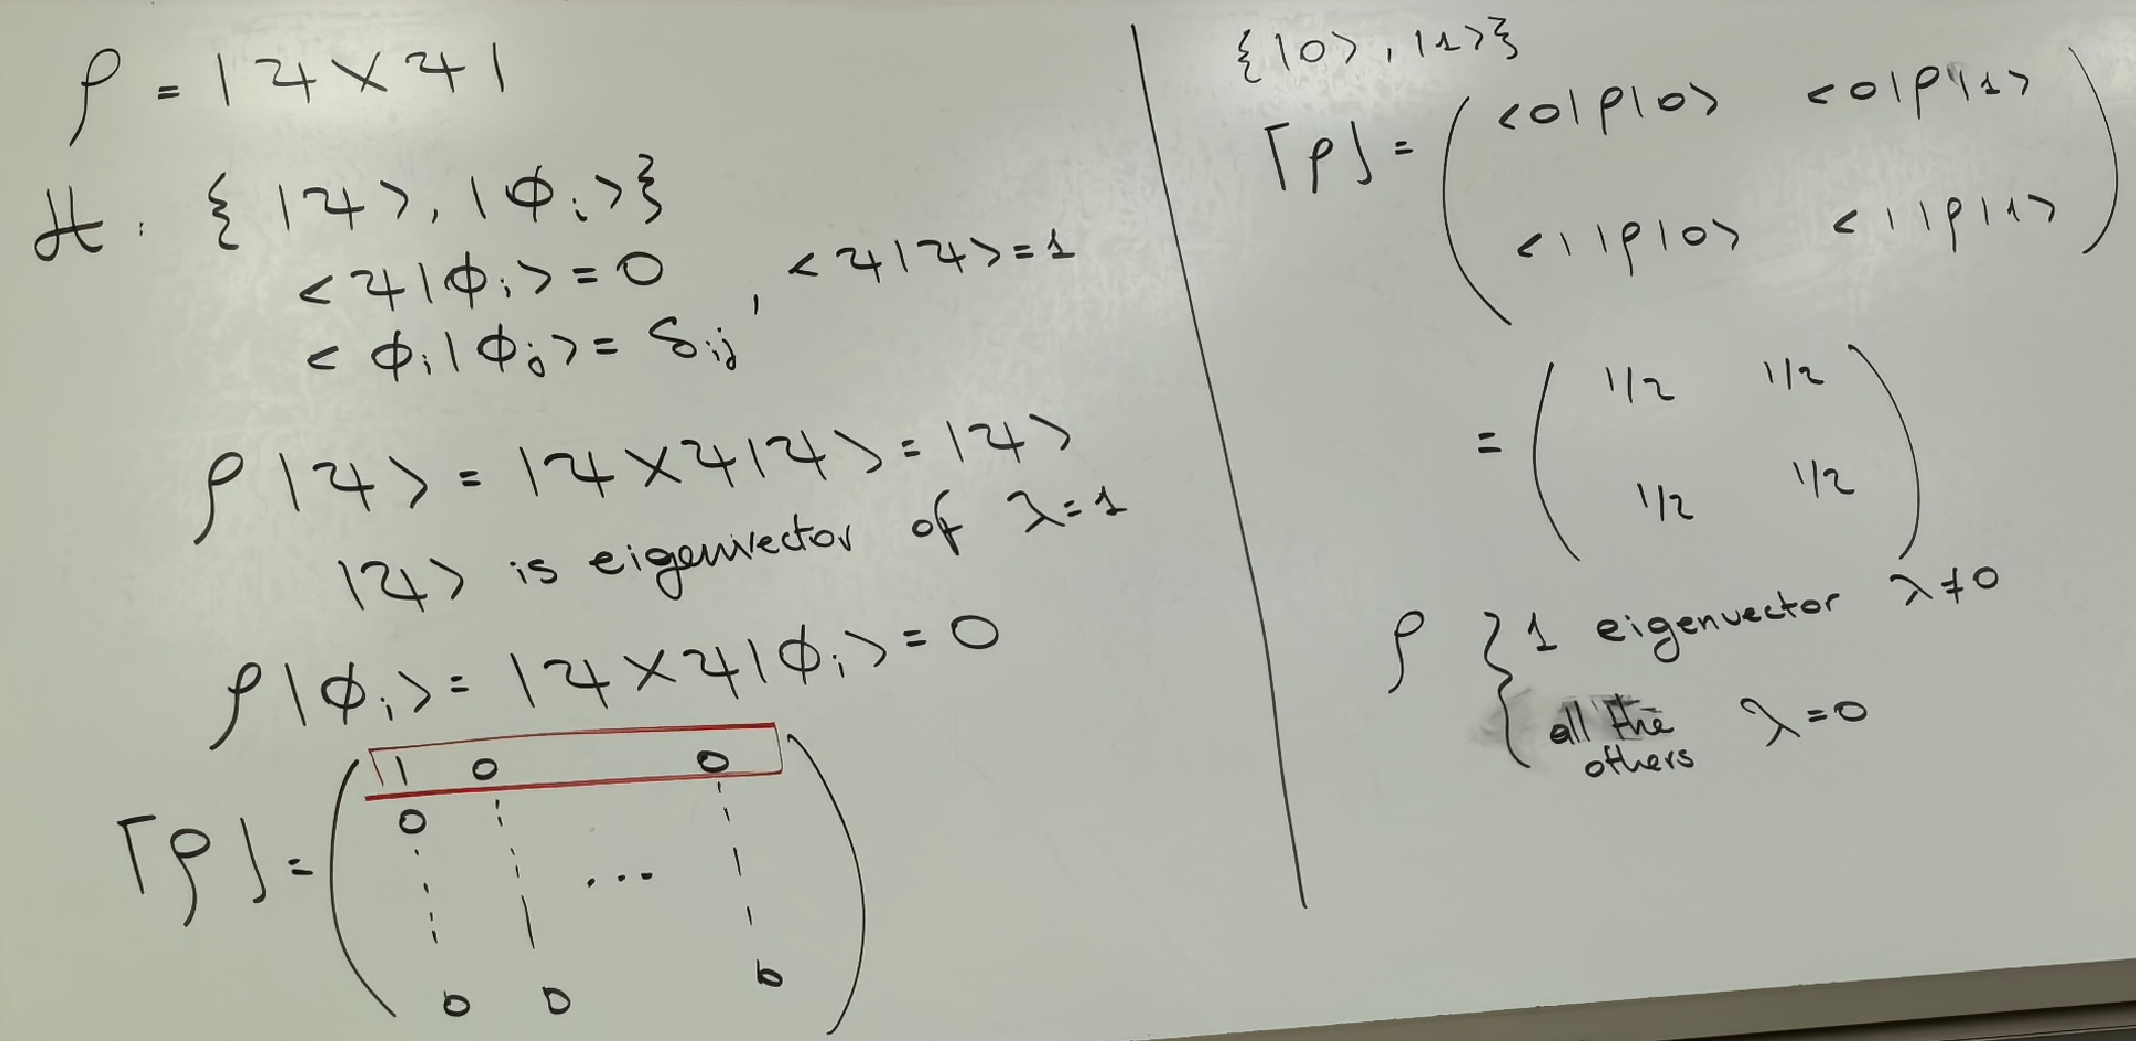 ρ = |ψ⟩⟨ψ|
H : { |ψ⟩, |ϕᵢ⟩ }
<ψ|ϕᵢ> = 0 , <ψ|ψ> = 1
<ϕᵢ|ϕⱼ> = δᵢⱼ
ρ|ψ⟩ = |ψ⟩⟨ψ|ψ⟩ = |ψ⟩
|ψ⟩ is eigenvector of λ=1
ρ|ϕᵢ⟩ = |ψ⟩⟨ψ|ϕᵢ⟩ = 0
[ρ] = ( 1 0 0
0
...
0 0 0 )
{ |0⟩, |1⟩ }
[ρ] = ( <0|ρ|0> <0|ρ|1>
<1|ρ|0> <1|ρ|1> )
= ( 1/2 1/2
1/2 1/2 )
ρ { 1 eigenvector λ≠0
all the λ=0
others